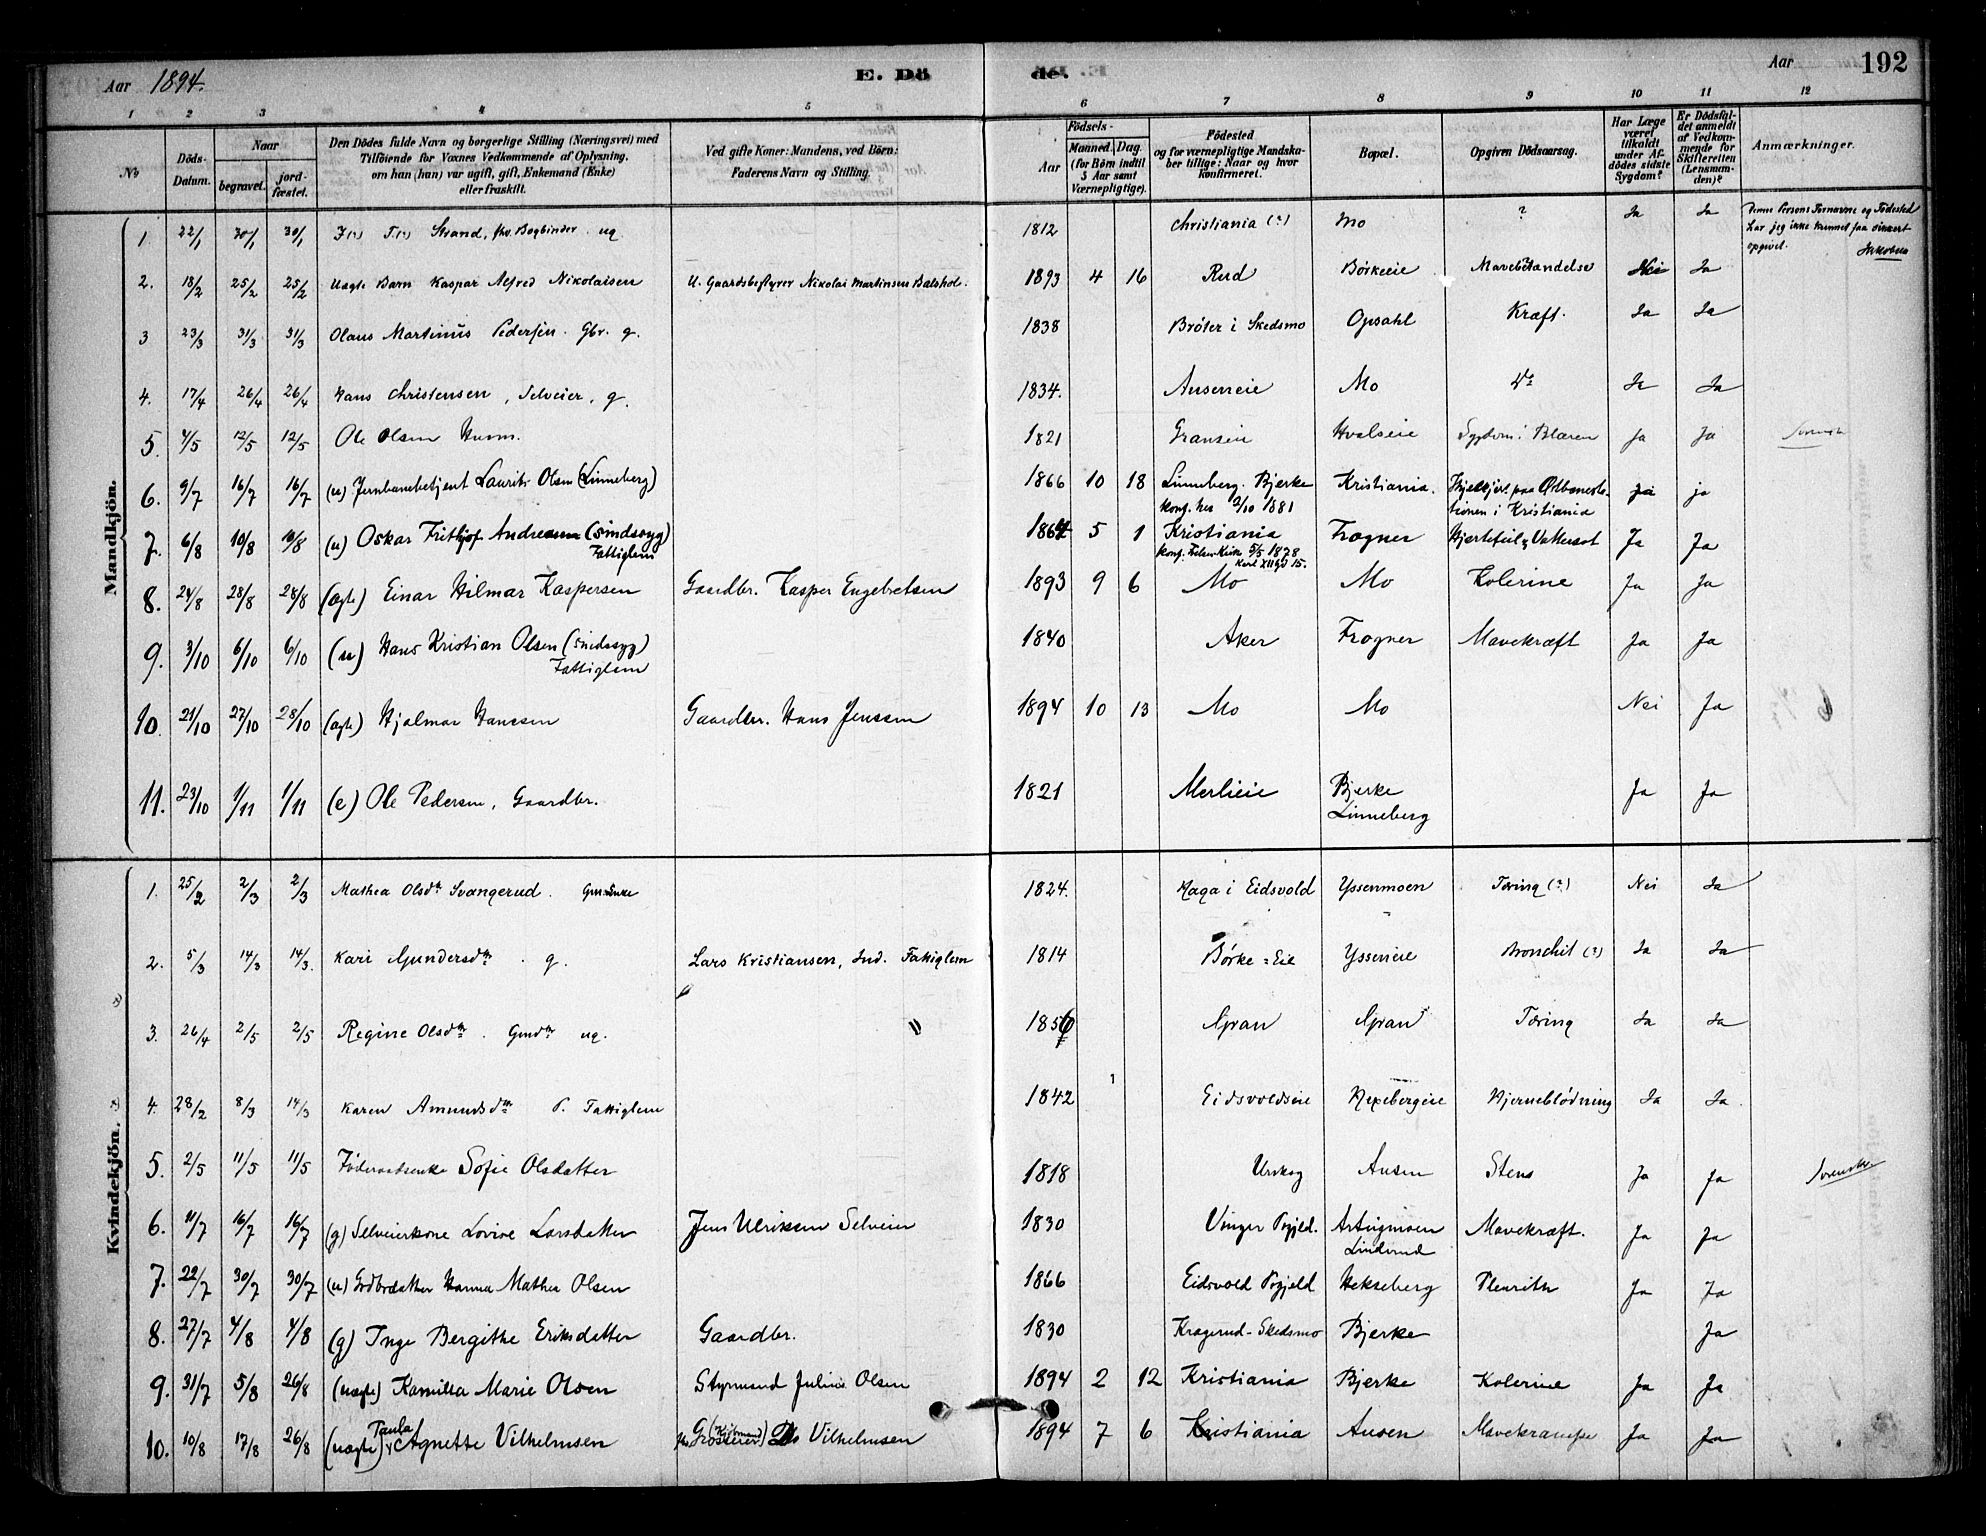 Aar 1894. E. Dö de. Aar 192
1 2 3 4 5 6 7 8 9 10 11 12
№ Döds-Datum. Naar begravet. jordfæstet. Den Dödes fulde Navn og borgerlige Stilling (Næringsvei) med Tilföiende for Voxnes Vedkommende af Oplysning, om han (hun) var ugift, gift, Enkemand (Enke) eller fraskilt. Ved gifte Koner: Mandens, ved Börn: Faderens Navn og Stilling. Aar Födsels- Maaned. Dag. (for Börn indtil 5 Aar samt Værnepligtige). Födested og for værnepligtige Mandskaber tillige: Naar og hvor konfirmeret. Bopæl. Opgiven Dödsaarsag. Har Læge været tilkaldt under Afdödes sidste Sygdom? Er Dödsfaldet anmeldt af Vedkommende for Skifteretten (Lensmanden)? Anmærkninger.
Mandkjön.
1. 22/1 30/1 30/1 Strand, fhv. Bogbinder. ug 1812 Christiania (?) Mo ? Ja Ja Denne Persons Fornavne og Födested har jeg ikke kunnet faa sikkert opgivet. Jakobsen
2. 18/2 25/2 25/2 Uægte Barn Kaspar Alfred Nikolaisen U. Gaardsbestyrer Nikolai Martinsen Balshol. 1893 4 16 Rud Börkeeie Mavebetændelse Nei Ja
3 23/3 31/3 31/3 Olaus Martinus Pedersen. Gbr. g. 1838 Bröter i Skedsmo Opsahl Kræft. Ja Ja
4. 17/4 26/4 26/4 Hans Christensen, Selveier, g. 1834. Auseneie Mo Do Ja Ja
5. 4/5 12/5 12/5 Ole Olsen Husm. 1821 Granseie Hvalseie Sygdom i Blæren Ja Ja Svensk
6. 9/7 16/7 16/7 (u) Jernbanebetjent Laurits Olsen (Linneberg) 1866 10 18 Linneberg. Bjerke konf. her 2/10 1881 Kristiania. Ihjelkjørt paa Østbanestationen i Kristiania ja ja
7. 6/8 10/8 10/8 (u) Oskar Frithjof Andreasen (sindssyg) Fattiglem 1864 5 1 Kristiania 3/5 1878 Frogner Hjertefeil & Vattersot Ja Ja
8. 24/8 28/8 28/8 (ægte) Einar Hilmar Kaspersen Gaardbr. Kasper Engebretsen 1893 9 6 Mo Mo Kolerine Ja Ja
9. 3/10 6/10 6/10 (u) Hans Kristian Olsen (sindssyg) Fattiglem 1840 Aker Frogner Mavekræft Ja Ja
10. 21/10 27/10 28/10 (ægte) Hjalmar Hanssen Gaardbr. Hans Jenssen 1894 10 13 Mo Mo Nei Ja
11. 23/10 1/11 1/11 (e) Ole Pedersen, Gaardbr. 1821 Merlieie Bjerke Linneberg Ja Ja
Kvindekjön.
1. 25/2 2/3 2/3 Mathea Olsdtr Svangerud. Gmdenke 1824. Haga i Eidsvold Yssenmoen Tæring (?) Nei Ja
2. 5/3 14/3 14/3. Kari Gundersdtr. g. Lars Kristiansen, Ind. Fattiglem 1814 Børke=Eie Ysseneie Bronchit (?) Ja Ja
3. 26/4 2/5 2/5 Regine Olsdtr. Gmdtr ug. 1856 Gran Gran Tæring Ja Ja
4. 28/2 8/3 14/3 Karen Amundsdtr P. Fattiglem 1842 Eidsvoldseie Hexebergeie Hjerneblödning Ja Ja.
5. 2/5 11/5 11/5 Föderaadsenke Sofie Olsdatter 1818 Urskog Ausen Stens Ja Ja Svensk
6. 11/7 16/7 16/7 (g) Selveierkone Lovise Larsdatter Jens Ulriksen Selveier 1830 Vinger Pgjeld. Lindrud Mavekræft. Ja Ja
7. 22/7 30/7 30/7 (u) Gdbrdatter Hanna Mathea Olsen 1866 Eidsvold Pgjeld Hekseberg Pleurith Ja Ja
8. 27/7 4/8 4/8 (g) Inge Bergithe Eriksdatter Gaardbr. 1830 Kragerud-Skedsmo Bjerke Ja
9. 31/7 5/8 26/8 (uægte) Kamilla Marie Olsen Styrmand Julius Olsen 1894 2 12 Kristiania Bjerke Kolerine Ja Ja
10. 10/8 17/8 26/8 (uægte) Paula Agnette Vilhelmsen fhv Grosserer (Kjøbmand) Vilhelmsen 1894 7 6 Kristiania Ausen Mavekrampe Ja Ja